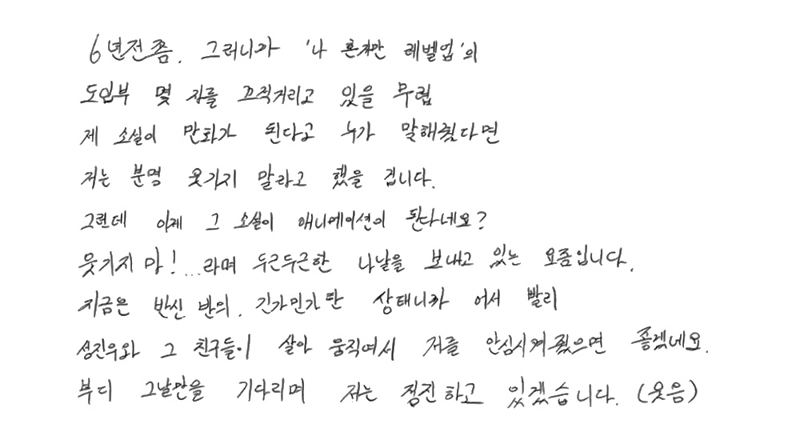 6년전쯤. 그러니까 '나 혼자만 레벨업'의
도입부 몇 자를 끄적거리고 있을 무렵
제 소설이 만화가 된다고 누가 말해줬다면
저는 분명 웃기지 말라고 했을 겁니다.
그런데 이제 그 소설이 애니메이션이 된다네요?
웃기지 마! ...라며 두근두근한 나날을 보내고 있는 요즘입니다.
지금은 반신 반의. 긴가민가한 상태니까 어서 빨리
성진우와 그 친구들이 살아 움직여서 저를 안심시켜줬으면 좋겠네요.
부디 그날만을 기다리며 저는 정진하고 있겠습니다. (웃음)